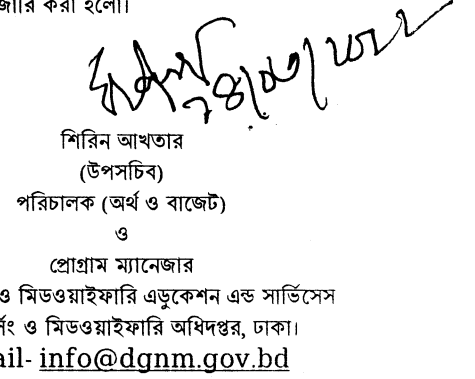 জারি করা হলো।
শিরিন আখতার
(উপসচিব)
পরিচালক (অর্থ ও বাজেট)
ও
প্রোগ্রাম ম্যানেজার
ও মিডওয়াইফারি এডুকেশন এন্ড সার্ভিসেস
ও মিডওয়াইফারি অধিদপ্তর, ঢাকা।
ail- info@dgnm.gov.bd